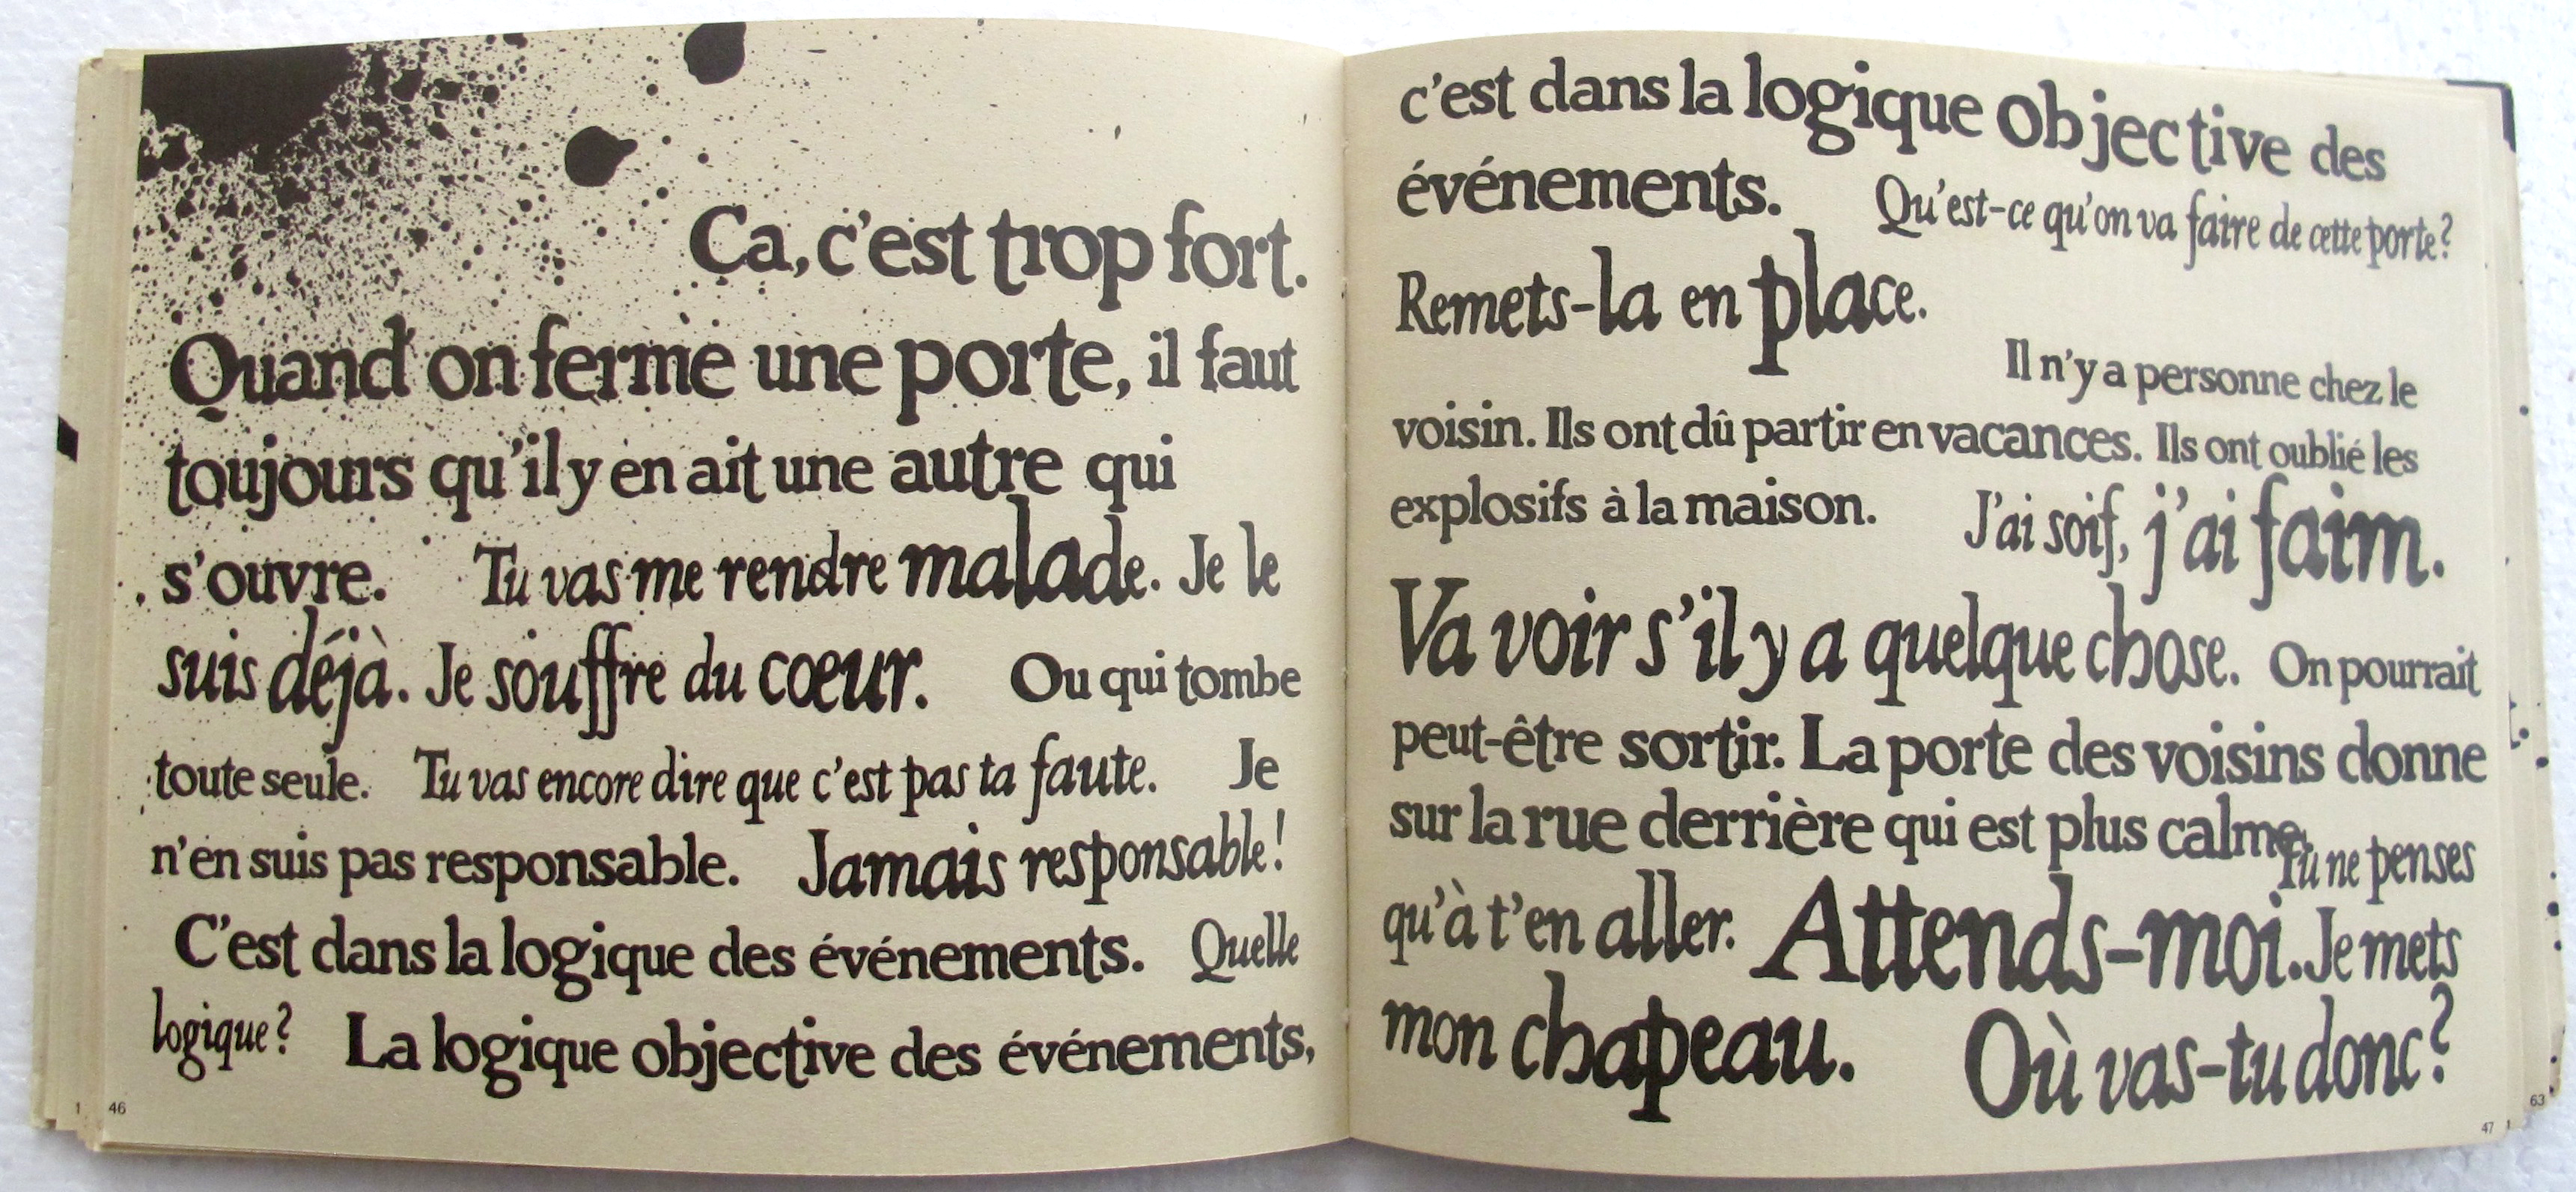 Ca, c'est trop fort.
Quand on ferme une porte, il faut
toujours qu'il y en ait une autre qui
s'ouvre. Tu vas me rendre malade. Je le
suis déjà. Je souffre du cœur. Ou qui tombe
toute seule. Tu vas encore dire que c'est pas ta faute. Je
n'en suis pas responsable. Jamais responsable!
C'est dans la logique des événements. Quelle
logique? La logique objective des événements,
1 46
c'est dans la logique objective des
événements. Qu'est-ce qu'on va faire de cette porte?
Remets-la en place.
Il n'y a personne chez le
voisin. Ils ont dû partir en vacances. Ils ont oublié les
explosifs à la maison. J'ai soif, j'ai faim.
Va voir s'il y a quelque chose. On pourrait
peut-être sortir. La porte des voisins donne
sur la rue derrière qui est plus calme.
Tu ne penses
qu'à t'en aller. Attends-moi. Je mets
mon chapeau. Où vas-tu donc?
47 1
63